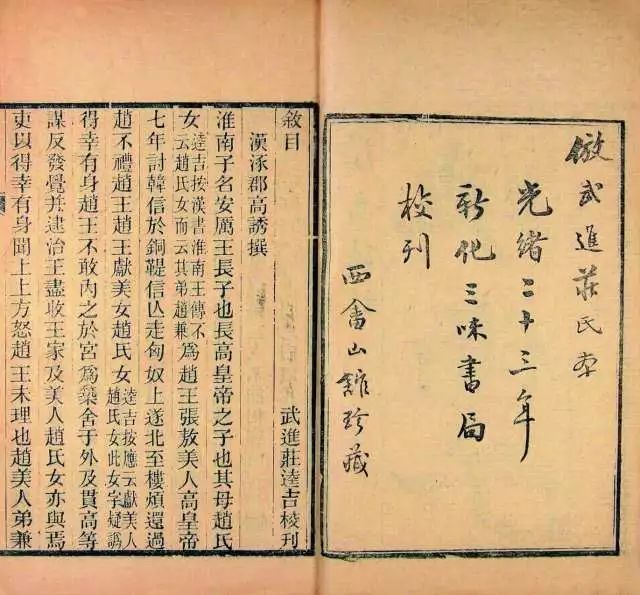 倣武進莊氏本
光緒二十三年
新化三味書局
校刊
西畬山館珍藏
敘目 武進莊逵吉校刊
漢涿郡高誘撰
淮南子名安厲王長子也長高皇帝之子也其母趙氏
女逵吉按漢書淮南王傳不云趙氏女而云其弟趙兼為趙王張敖美人高皇帝
七年討韓信於銅鞮信亾走匈奴上遂北至樓煩還過
趙不禮趙王趙王獻美女趙氏女逵吉按應云獻美人趙氏女此女字疑譌
得幸有身趙王不敢內之於宮為築舍于外及貫高等
謀反發覺并逮治王盡收王家及美人趙氏女亦與焉
吏以得幸有身聞上上方怒趙王未理也趙美人弟兼